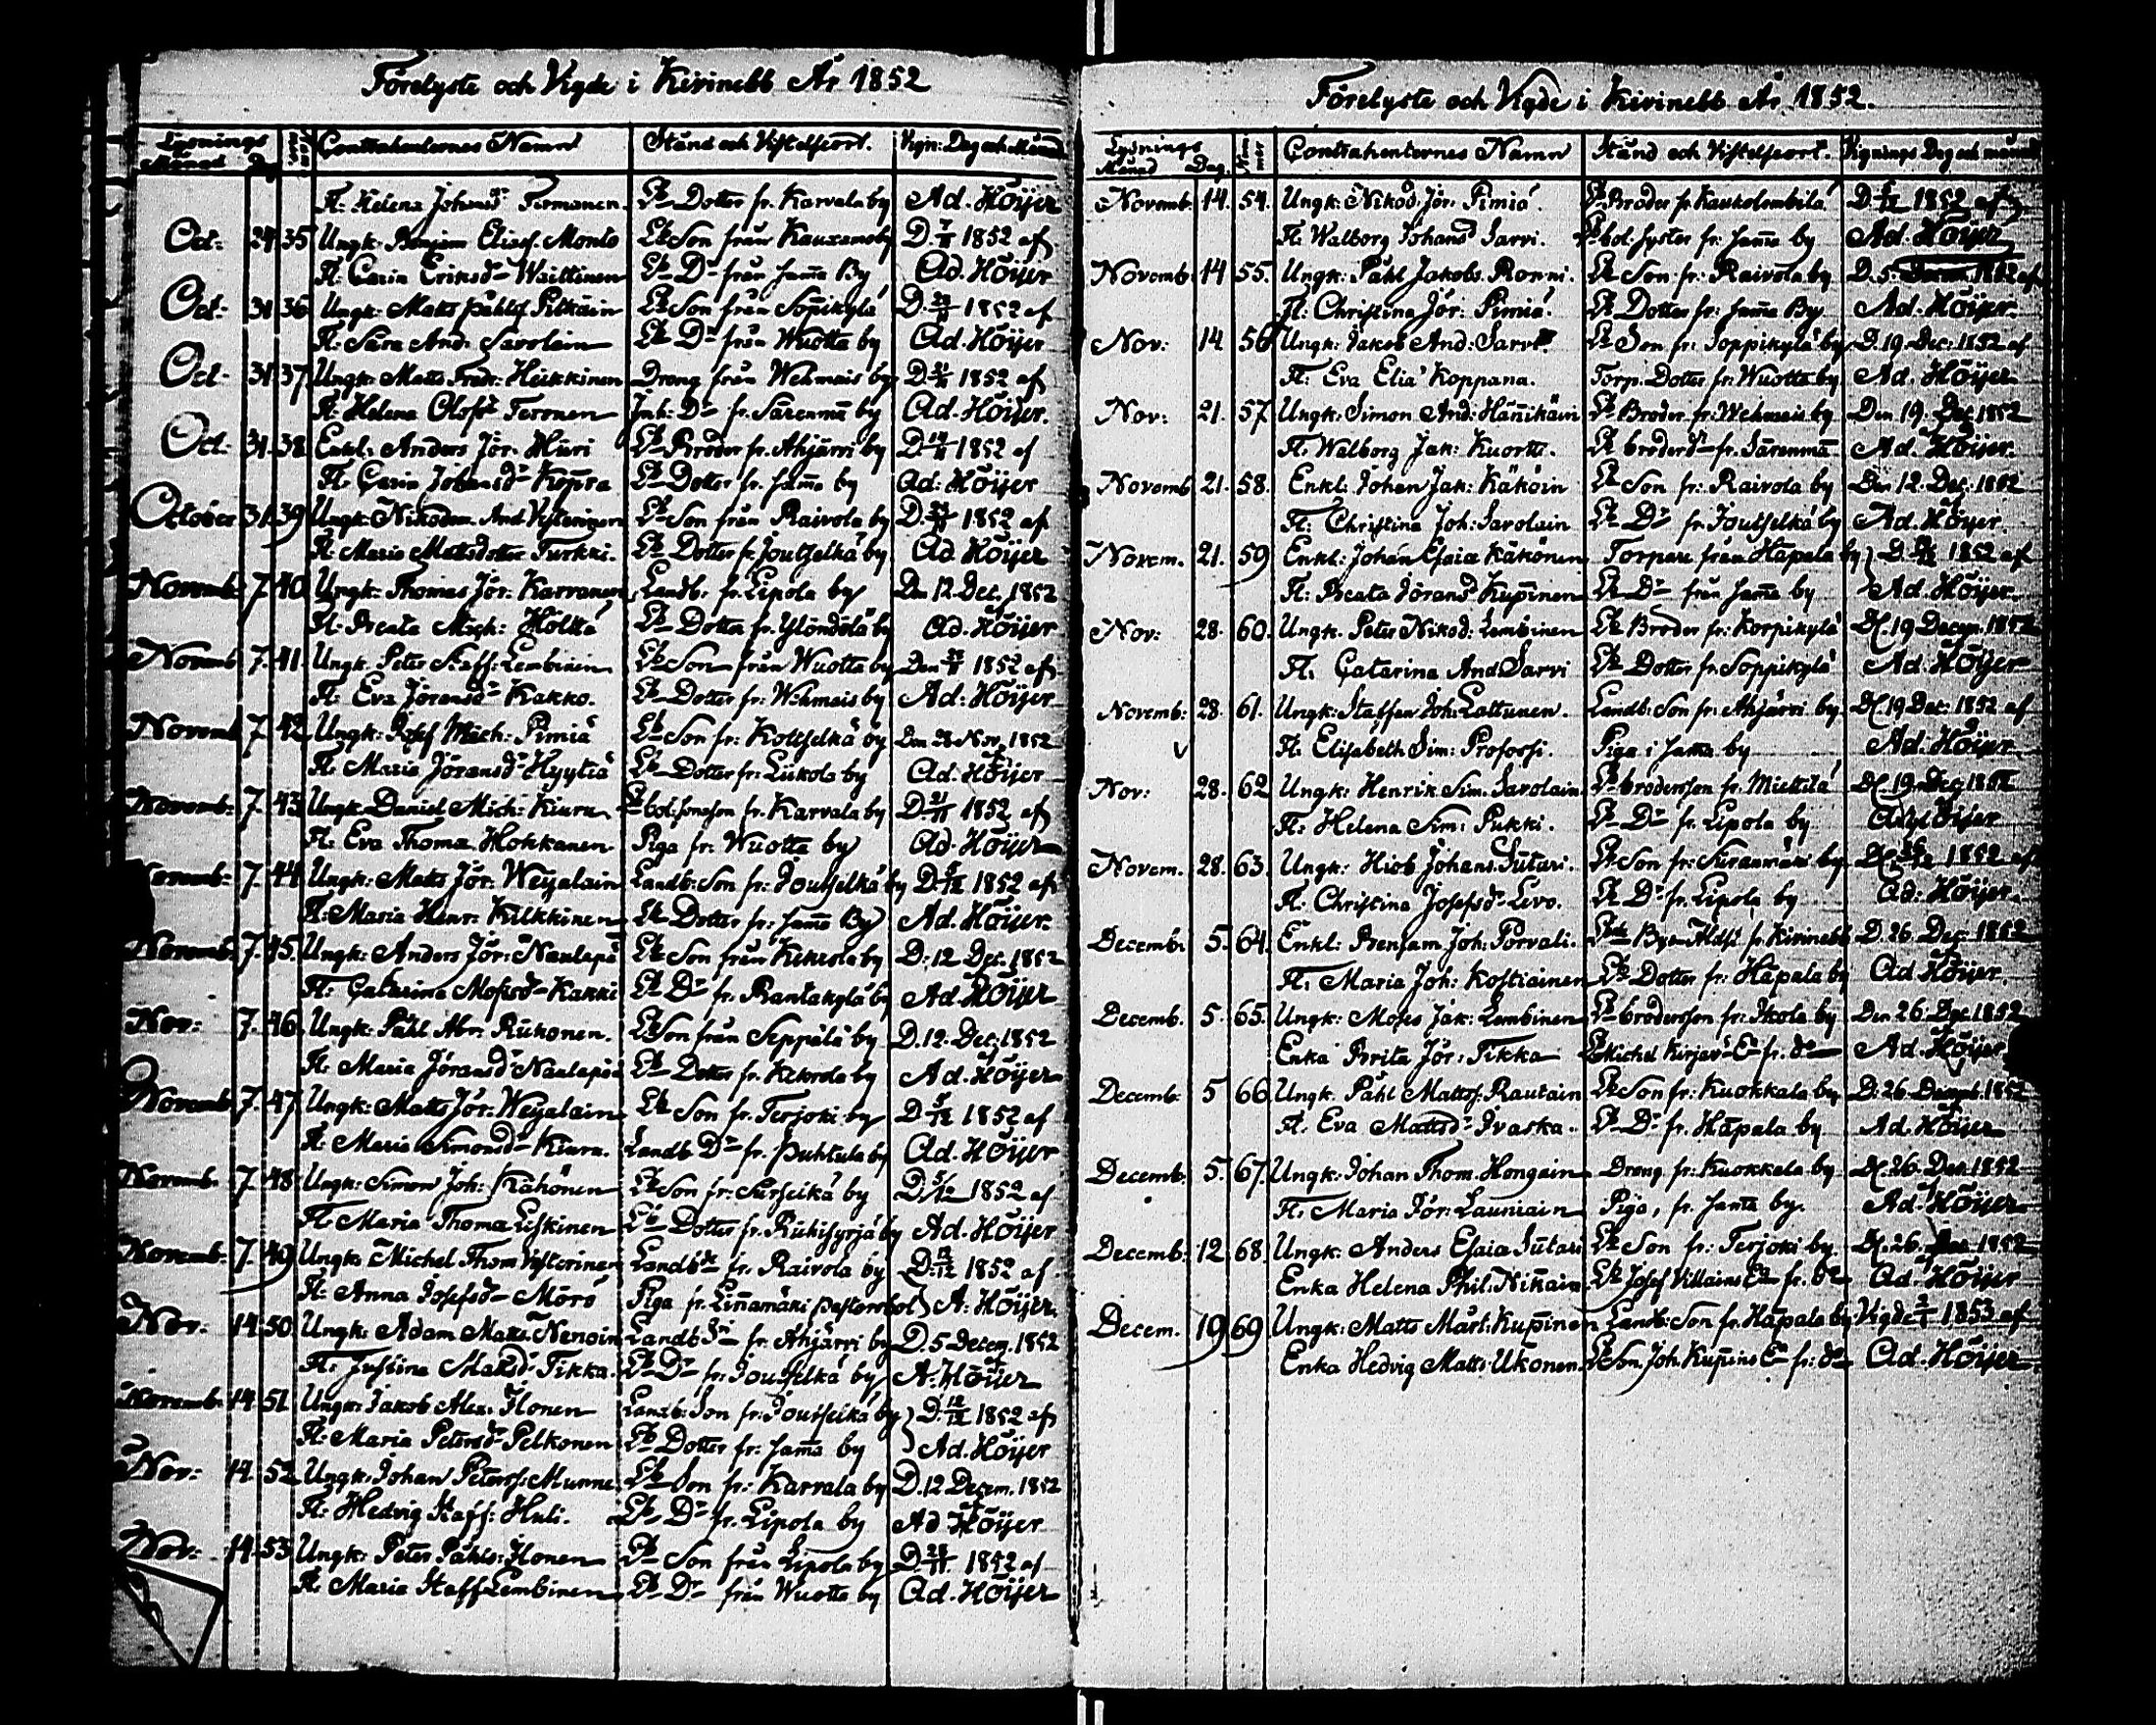 Förelyste och Vigde i Kivinebb År 1852
Lysnings Contrahenternes Namn Stånd och Vistelseort. Vign: Dag och Månad
Månad Dag
Fl: Helena Johansdr Termonen Lb Dotter fr. Karvala by Ad. Höijer
Oct: 24 35 Ungk: Benjam Eliass. Monto Lb Son från Kauxamo by D. 7/11 1852 af
Fl: Caria Eriksdr Waittinen Lb Dr från samma By Ad. Höijer
Oct: 31 36 Ungk: Matts Påhlss. Pitkäin Lb Son från Soppikylä D. 28/11 1852 af
Fl: Sara And: Savolain Lb Dr från Wuotta by Ad. Höijer
Oct- 31 37 Ungk: Matts Fredr: Heikkinen Dreng från Wehmais by D. 21/11 1852 af
Fl: Helena Olofsdr Teronen Inh: Dr fr. Särenmä by Ad. Höijer.
Oct 31. 38. Enkl: Anders Jör: Huri Lb Broder fr. Ahjärvi by D. 14/11 1852 af
Fl: Carin Johansdr Koppra Lb Dotter fr. samma by Ad: Höijer
October 31. 39 Ungk: Nikodem. And. Vesterinen Lb Son från Raivola by D. 1852 af
Fl: Maria Mattsdotter Turkki. Lb Dotter fr. Joutselkä by Ad. Höijer
Novemb: 7. 40. Ungk: Thomas Jör: Karvanen Landb. fr. Lipola by Den 12. Dec. 1852
Fl: Beata Mich: Hölttä Lb Dotter fr. Ylöndölä by Ad. Höijer
Novemb 7. 41. Ungk. Peter Staff: Lembinen Lb Son från Wuotta by Den 28/11 1852 af
Fl: Eva Jöransdr Kakko. Lb Dotter fr: Wehmais by Ad. Höijer
Novemb 7. 42 Ungk: Josef Mich: Pimiä Lb Son fr: Kottselkä by Den 28 Nov. 1852
Fl: Maria Jöransdr Hyytiä Lb Dotter fr: Liikola by Ad. Höijer
Novemb: 7. 43 Ungk: Daniel Mich: Kiuru Lb bol: sonson fr. Karvala by D. 21/11 1852 af
Fl: Eva Thoma. Hokkanen Piga fr: Wuotta by Ad. Höijer
Novemb: 7. 44. Ungk: Matts Jör: Weijalain Landb: Son fr: Joutselkä by D. 5/12 1852 af
Fl: Maria Henr: Kilkkinen Lb Dotter fr: samma By Ad. Höijer.
Novemb. 7. 45. Ungk: Anders Jör: Naulapä Lb Son från Kekrola by D: 12 Dec. 1852
Fl: Catarina Mosesdr Kakki Lb Dr fr. Rantakylä by Ad. Höijer
Nov: 7. 46. Ungk: Påhl Abr: Rükonen. Lb Son från Seppälä by D. 12. Dec. 1852
Fl: Maria Jöransdr Naulapää Lb Dotter fr. Kekrola by Ad. Höijer
Novemb 7. 47 Ungk: Matts Jör: Weijalain Lb Son fr. Terjoki by D. 5/12 1852 af
Fl: Maria Simonsdr Kiuru. Landb. Dr fr. Puhtula by Ad. Höijer
Novemb. 7. 48. Ungk: Simon Joh: Kähönen Lb Son fr: by D. 5/12 1852 af
Fl: Maria Thoma Liskinen Lb Dotter fr. Rükisyrjä by Ad. Höijer
Novemb: 7. 49 Ungk. Michel Thom Vesterinen Landb fr. Raivola by D. 12/12 1852 af
Fl: Anna Josefsdr Mörö Piga fr. Linnamäki Pastorsbol A. Höijer.
Nov: 14 50 Ungk: Adam Matts. Nenoin Landb Sn fr. Ahjärvi by D. 5 Decem. 1852
Fl: Justina Makdr Tikka. Lb Dr fr. Joutselkä by A. Höijer
Novemb: 14. 51 Ungk: Jakob Alex: Ilonen Landb: Son fr: Joutselkä by D. 12/12 1852 af
Fl: Maria Petersdr Pelkonen Lb Dotter fr: samma by Ad. Höijer
Nov: 14. 52 Ungk: Johan Peterss: Munne Lb Son fr: Karvala by D. 12 Decem. 1852
Fl: Hedvig Staff: Huli. Lb Dr fr. Lipola by Ad. Höijer
Nov: 14. 53 Ungk: Peter Påhls: Ilonen Lb Son från Lipola by D. 28/11 1852 af
Fl: Maria Staff Lembinen Lb Dr från Wuotta by Ad. Höijer
Förelyste och Vigde i Kivinebb År 1852.
Lysnings Contrahenternes Namn Stånd och Vistelseort. Vignings Dag och månad
Månad Dag.
Novemb: 14. 54. Ungk: Nikod: Jör: Pimiä. Lb Broder fr Kaukolembilä D. 1852 af
Fl: Walborg Johansd Sarvi. bol. syster fr: samma by Ad. Höijer
Novemb: 14 55. Ungk: Påhl Jakobs. Ronni. Lb Son fr: Raivola by D. 5. Decem. 1852 af
Fl: Christina Jör: Pimiä. Lb Dotter fr: samma By Ad. Höijer.
Nov: 14 56 Ungk: Jakob And: Sarvi. Lb Son fr: Soppikylä by D. 19. Dec. 1852 af
Fl: Eva Elia Koppana. Torp. Dotter fr: Wuotta by Ad. Höijer
Nov: 21. 57 Ungk: Simon And: Hännikäin Lb Broder fr: Wehmais by Den 19. Dec 1852
Fl: Walborg Jak: Kuortti. Lb broderdr fr. Särenmä Ad. Höijer.
Novemb 21. 58. Enkl: Johan Jak: Käköin Lb Son fr: Raivola by Den 12. Dec. 1852
Fl: Christina Joh: Savolain Lb Dr fr: Joutselkä by Ad. Höijer.
Novem. 21. 59 Enkl: Johan Esaia Käkönen Torpare från Hapala by D. 1852 af
Fl: Beata Jörans Kuppinen Lb Dr från samma by Ad. Höijer.
Nov: 28. 60. Ungk. Peter Nikod: Lembinen Lb Broder fr: Korpikylä D. 19 Decem. 1852
Fl: Catarina And Sarvi Lb Dotter fr: Soppikylä Ad. Höijer
Novemb: 28. 61. Ungk: Staffan Joh: Lattunen. Landb: Son fr: Ahjärvi by. D. 19 Dec. 1852 af
Fl: Elisabeth Sim: Proforsi. Piga i samma by Ad. Höijer
Nov: 28. 62 Ungk: Henrik Sim. Savolain Lb brodersson fr. Miettilä D. 19. Dec 1852
Fl: Helena Sim: Pukki. Lb Dr fr. Lipola by Ad Höijer
Novem. 28. 63. Ungk: Hiob Johans: Sutari. Lb Son fr: Suranmäki by D. 26/12 1852 af
Fl: Christina Josefsdr Levo. Lb Dr fr. Lipola by Ad: Höijer.
Decemb. 5. 64. Enkl: Benjam Joh: Porvali. fr. Kivinebb D. 26. Dec. 1852
Fl: Maria Joh: Kostiainen Lb Dotter fr: Hapala by Ad. Höijer
Decemb. 5. 65. Ungk: Moses Jak: Lembinen Lb brodersson fr. Ikola by Den 26. Dec. 1852
Enka Brita Jör: Tikka Michel Kirjav: fr. do Ad. Höijer
Decemb: 5 66 Ungk. Påhl Matss: Rautain Lb Son fr: Kuokkala by D: 26. Decemb. 1852
Fl. Eva Mattsdr Ivaska. Lb Dr fr. Hapala by Ad. Höijer
Decemb: 5. 67. Ungk: Johan Thom. Hongain Dreng fr: Kuokkala by D. 26. Dec. 1852
Fl: Maria Jör: Launiain Piga, fr. samma by. Ad. Höijer
Decemb: 12. 68. Ungk: Anders Esaia Sutari Lb Son fr: Terjoki by. D. 26. Dec. 1852
Enka Helena Phil: Nikkain. Lb Josef Villains Ea fr. do Ad. Höijer
Decem. 19 69 Ungk: Matts Mårt: Kuppinen Landb: Son fr. Hapala by Vigde 2/1 1853 af
Enka Hedvig Matts Ukonen. Lb Son Joh. Kuppins Ea fr: do Ad. Höijer.